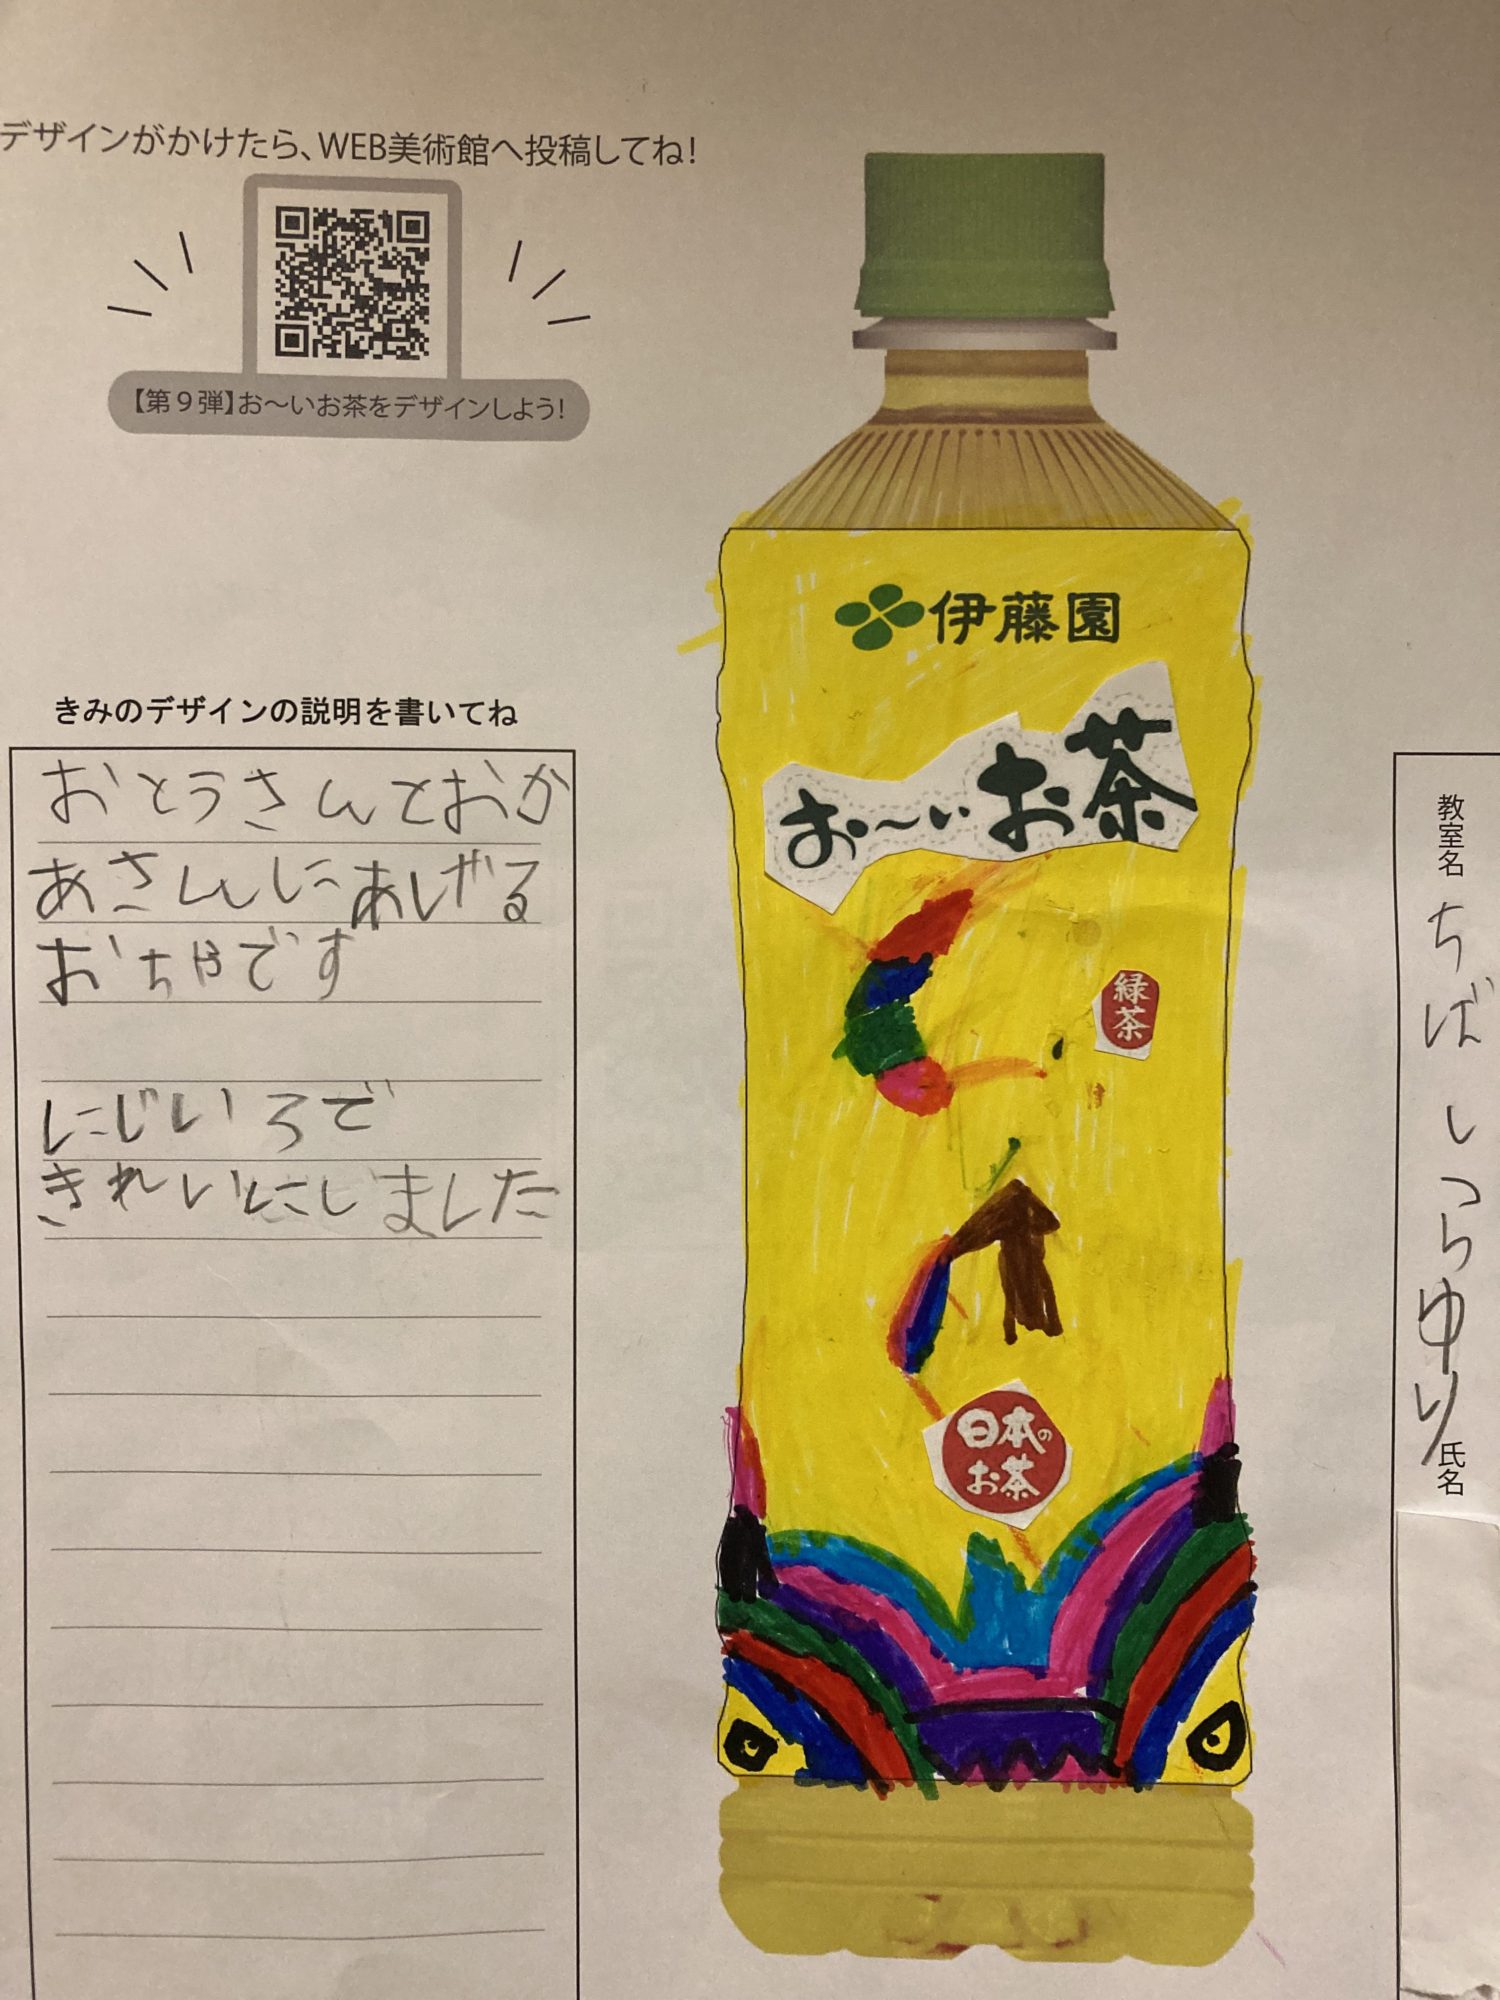 デザインがかけたら、WEB美術館へ投稿してね!
【第9弾】お〜いお茶をデザインしよう!
きみのデザインの説明を書いてね
おとうさんとおか
あさんにあげる
おちゃです
にじいろで
きれいにしました
伊藤園
お〜いお茶
緑茶
日本の
お茶
教室名
ちば
氏名